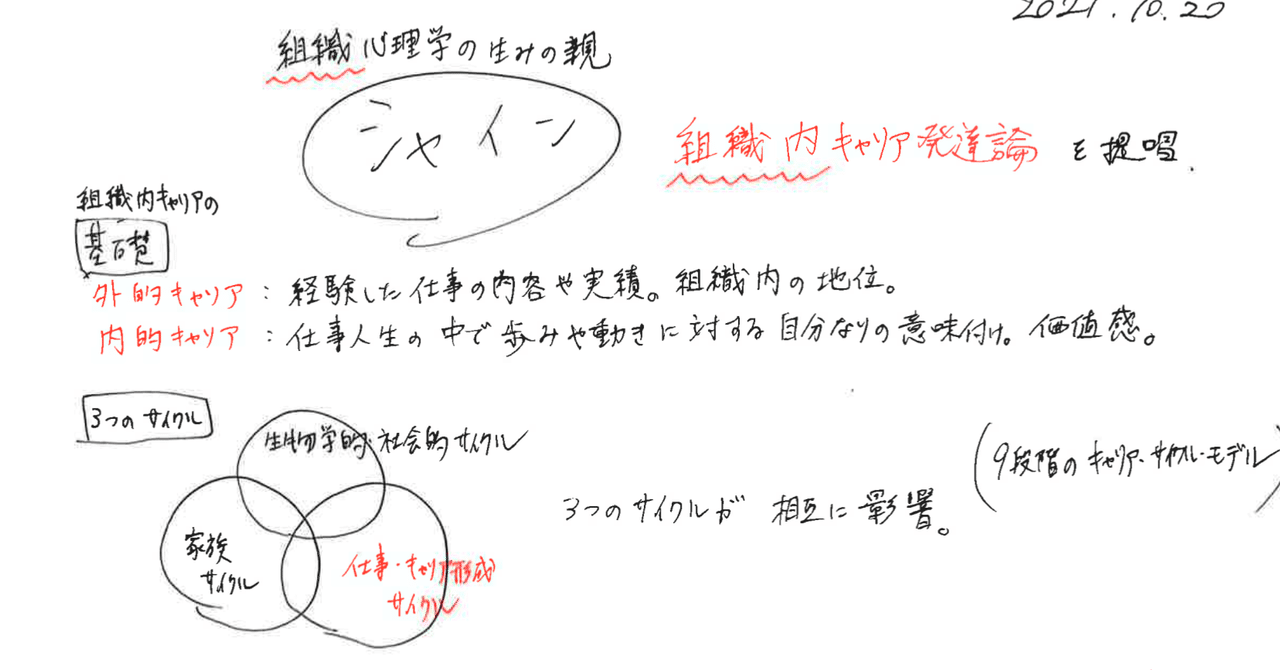 2021.10.20
組織心理学の生みの親
シャイン
組織内キャリア発達論 を提唱.
組織内キャリアの
基礎
外的キャリア：経験した仕事の内容や実績。組織内の地位。
内的キャリア：仕事人生の中で歩みや動きに対する自分なりの意味付け。価値感。
3つのサイクル
生物学的・社会的サイクル
(9段階のキャリア・サイクル・モデル)
3つのサイクルが 相互に影響。
家族
サイクル
仕事・キャリア形成
サイクル